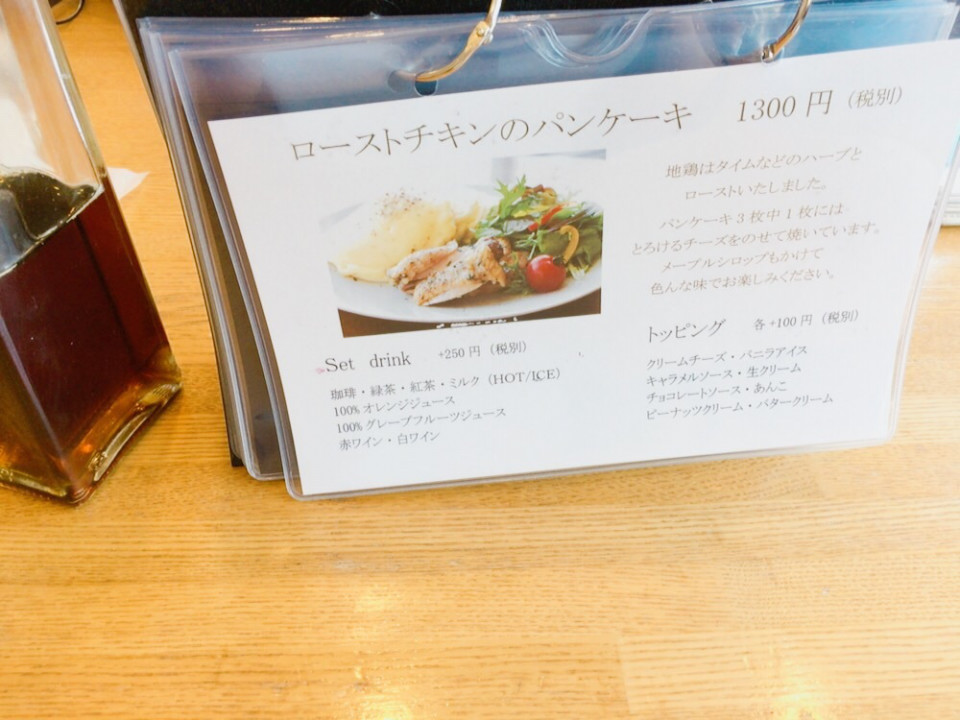 ローストチキンのパンケーキ 1300 円 (税別)
地鶏はタイムなどのハーブと
ローストいたしました。
パンケーキ3枚中1枚には
とろけるチーズをのせて焼いています。
メープルシロップもかけて
色んな味でお楽しみください。
Set drink +250 円 (税別)
珈琲・緑茶・紅茶・ミルク (HOT/ICE)
100% オレンジジュース
100% グレープフルーツジュース
赤ワイン・白ワイン
トッピング 各+100 円 (税別)
クリームチーズ・バニラアイス
キャラメルソース・生クリーム
チョコレートソース・あんこ
ピーナッツクリーム・バタークリーム